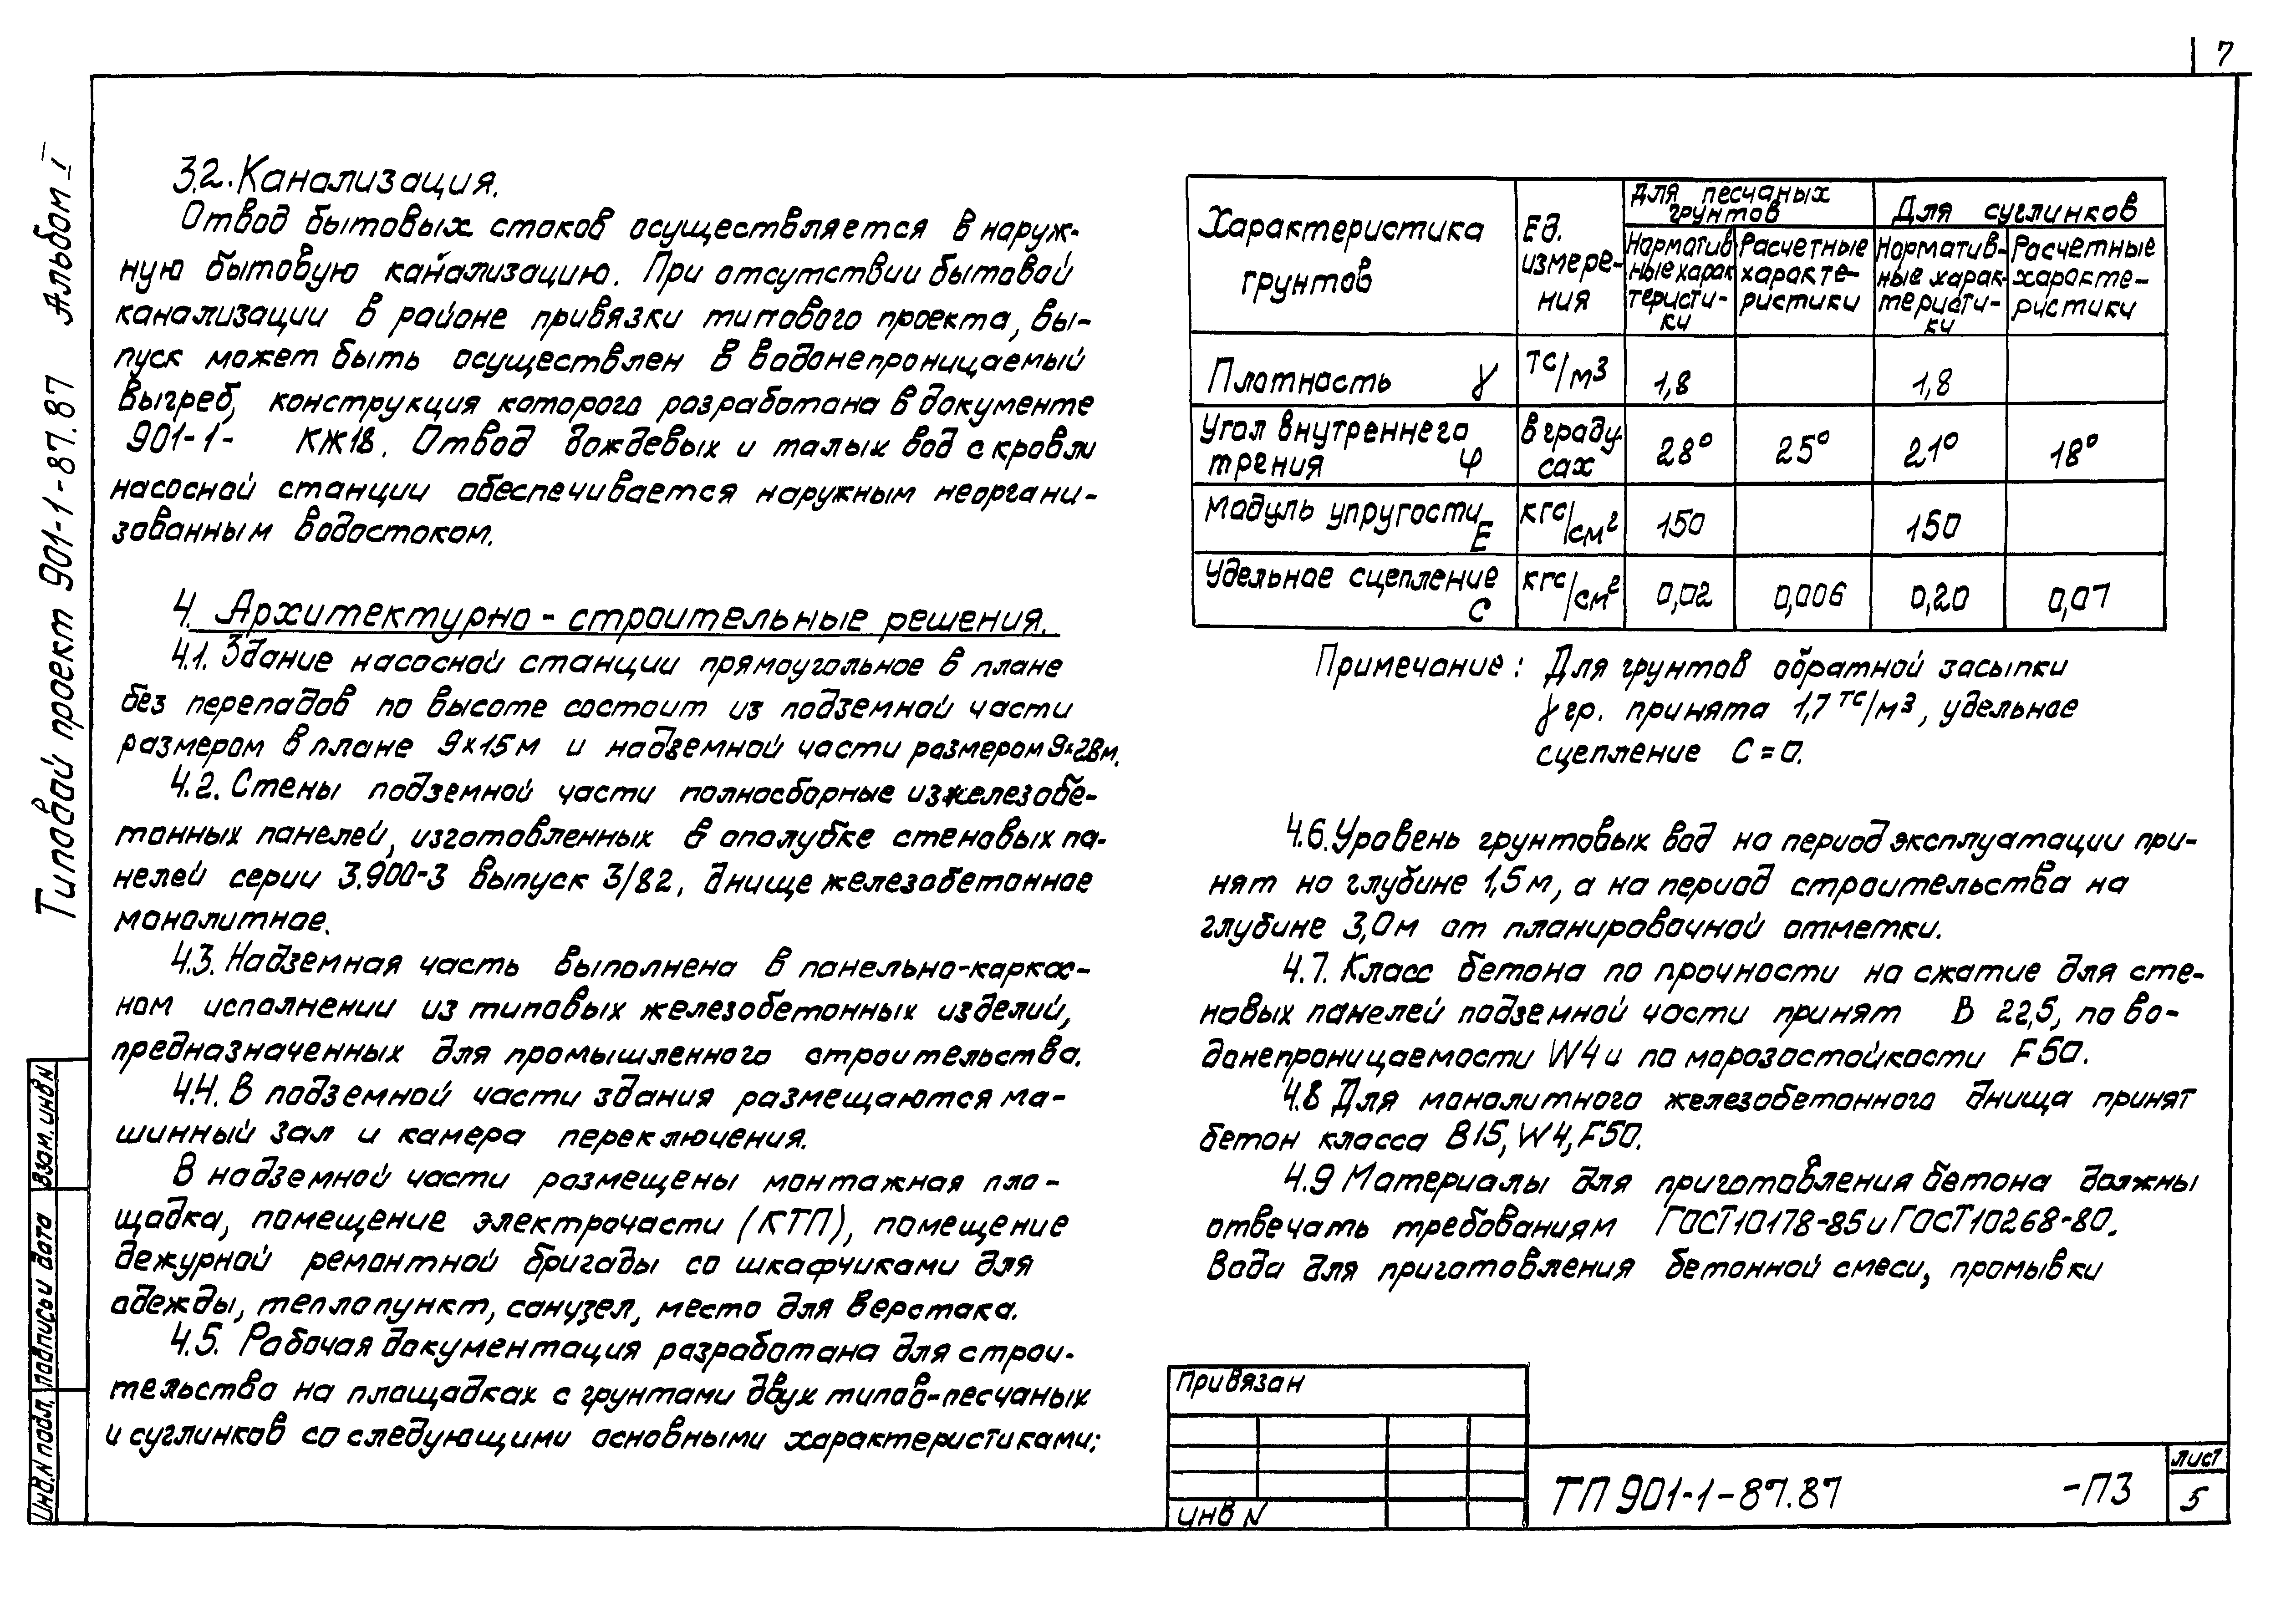 7
Типовой проект 901-1-87.87 Альбом I
3.2. Канализация.
Отвод бытовых стоков осуществляется в наруж-
ную бытовую канализацию. При отсутствии бытовой
канализации в районе привязки типового проекта, вы-
пуск может быть осуществлен в водонепроницаемый
выгреб, конструкция которого разработана в документе
901-1- КЖ18. Отвод дождевых и талых вод с кровли
насосной станции обеспечивается наружным неоргани-
зованным водостоком.
4. Архитектурно-строительные решения.
4.1. Здание насосной станции прямоугольное в плане
без перепадов по высоте состоит из подземной части
размером в плане 9х15м и надземной части размером 9х28м.
4.2. Стены подземной части полносборные из железобе-
тонных панелей, изготовленных в опалубке стеновых па-
нелей серии 3.900-3 выпуск 3/82, днище железобетонное
монолитное.
4.3. Надземная часть выполнена в панельно-каркас-
ном исполнении из типовых железобетонных изделий,
предназначенных для промышленного строительства.
4.4. В подземной части здания размещаются ма-
шинный зал и камера переключения.
В надземной части размещены монтажная пло-
щадка, помещение электрочасти (КТП), помещение
дежурной ремонтной бригады со шкафчиками для
одежды, теплопункт, санузел, место для верстака.
4.5. Рабочая документация разработана для строи-
тельства на площадках с грунтами двух типов-песчаных
и суглинков со следующими основными характеристиками:
Характеристика грунтов | Ед. измере-ния | для песчаных грунтов | Для суглинков
Норматив-ные харак-теристи-ки | Расчетные характе-ристики | Норматив-ные харак-теристи-ки | Расчетные характе-ристики
Плотность γ | тс/м3 | 1,8 | | 1,8 |
Угол внутреннего трения φ | в граду-сах | 28° | 25° | 21° | 18°
Модуль упругости E | кгс/см2 | 150 | | 150 |
Удельное сцепление С | кгс/см2 | 0,02 | 0,006 | 0,20 | 0,07
Примечание: Для грунтов обратной засыпки
γ гр. принята 1,7 тс/м3, удельное
сцепление С=0.
4.6. Уровень грунтовых вод на период эксплуатации при-
нят на глубине 1,5м, а на период строительства на
глубине 3,0м от планировочной отметки.
4.7. Класс бетона по прочности на сжатие для сте-
новых панелей подземной части принят В 22,5, по во-
донепроницаемости W4 и по морозостойкости F50.
4.8 Для монолитного железобетонного днища принят
бетон класса В15, W4, F50.
4.9 Материалы для приготовления бетона должны
отвечать требованиям ГОСТ10178-85 и ГОСТ10268-80.
Вода для приготовления бетонной смеси, промывки
Привязан
Инв N
ТП 901-1-87.87 -ПЗ
Лист
5
Взам. инв N
Подпись и дата
Инв. N подл.